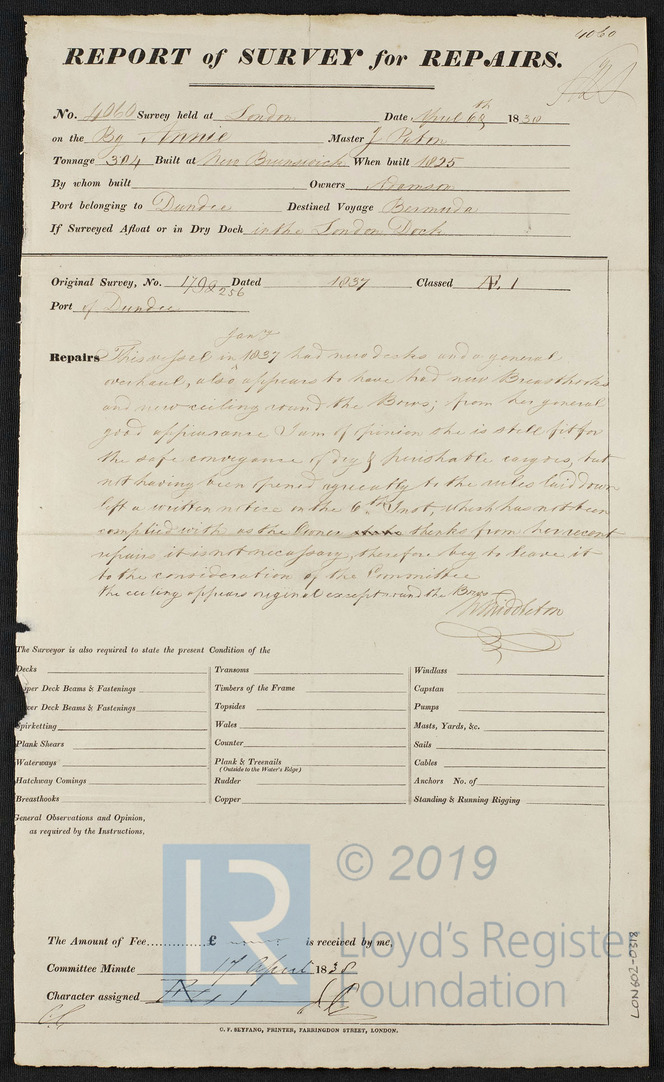 4060
REPORT of SURVEY for REPAIRS.
No. 4060 Survey held at London Date April 6th 1838
on the Bg Annie Master J Paton
Tonnage 304 Built at New Brunswick When built 1825
By whom built Owners Adamson
Port belonging to Dundee Destined Voyage Bermuda
If Surveyed Afloat or in Dry Dock in the London Dock
Original Survey, No. 256 Dated 1837 Classed Æ 1
Port of Dundee
Jany
Repairs This vessel in 1837 had new decks and a general
overhaul, also appears to have had new Breasthooks
and new ceiling round the Bows; from her general
good appearance I am of opinion she is still fit for
the safe conveyance of dry & perishable cargoes, but
not having been opened agreeably to the rules laid down
left a written notice on the 6th Inst, which has not been
complied with as the Owner thinks from her recent
repairs it is not necessary, therefore beg to leave it
to the consideration of the Committee
the ceiling appears original except round the Bows
W Middleton
The Surveyor is also required to state the present Condition of the
Decks Transoms Windlass
Upper Deck Beams & Fastenings Timbers of the Frame Capstan
Lower Deck Beams & Fastenings Topsides Pumps
Spirketting Wales Masts, Yards, &c.
Plank Shears Counter Sails
Waterways Plank & Treenails Cables
(Outside to the Water's Edge)
Hatchway Comings Rudder Anchors No. of
Breasthooks Copper Standing & Running Rigging
General Observations and Opinion,
as required by the Instructions.
LR
© 2019
Lloyd's Register
Foundation
The Amount of Fee............£ is received by me,
Committee Minute 17 April 1838
Character assigned Æ 1
C. F. SEYFANG, PRINTER, FARRINGDON STREET, LONDON.
LON602-0318